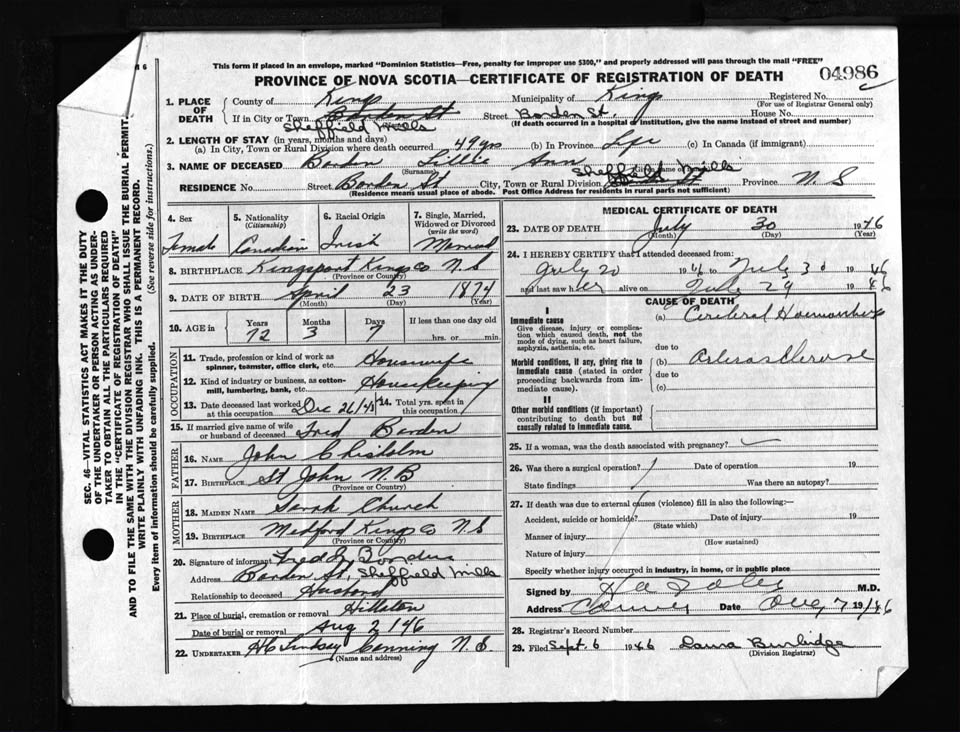 This form if placed in an envelope, marked "Dominion Statistics—Free, penalty for improper use $300," and properly addressed will pass through the mail "FREE"
PROVINCE OF NOVA SCOTIA—CERTIFICATE OF REGISTRATION OF DEATH
04986
1. PLACE OF DEATH { County of Kings Municipality of Kings Registered No.
(For use of Registrar General only)
If in City or Town Borden St Street Borden St. House No.
(If death occurred in a hospital or institution, give the name instead of street and number)
Sheffield Mills
2. LENGTH OF STAY (in years, months and days)
(a) In City, Town or Rural Division where death occurred 49 yrs (b) In Province Life (c) In Canada (if immigrant)
3. NAME OF DECEASED Borden Lillie Ann
(Surname) (Given name or names)
Sheffield Mills
RESIDENCE No. Street Borden St City, Town or Rural Division Province N. S
(Residence means usual place of abode. Post Office Address for residents in rural parts not sufficient)
4. Sex 5. Nationality (Citizenship) 6. Racial Origin 7. Single, Married, Widowed or Divorced (write the word)
Female Canadian Irish Married
8. BIRTHPLACE Kingsport Kings Co N. S
(Province or Country)
9. DATE OF BIRTH April 23 1874
(Month) (Day) (Year)
10. AGE in { Years Months Days If less than one day old
72 3 7 hrs. or min.
OCCUPATION
11. Trade, profession or kind of work as spinner, teamster, office clerk, etc. Housewife
12. Kind of industry or business, as cotton-mill, lumbering, bank, etc. Housekeeping
13. Date deceased last worked at this occupation Dec 26/45 14. Total yrs. spent in this occupation
15. If married give name of wife or husband of deceased Fred Borden
FATHER
16. NAME John Chisholm
17. BIRTHPLACE St John N. B
(Province or Country)
MOTHER
18. MAIDEN NAME Sarah Church
19. BIRTHPLACE Medford Kings Co N. S
(Province or Country)
20. Signature of informant Fred Borden
Address Borden St, Sheffield Mills
Relationship to deceased Husband
21. Place of burial, cremation or removal Hillaton
Date of burial or removal Aug 2/46
22. UNDERTAKER H C Lindsay Canning N. S.
(Name and address)
MEDICAL CERTIFICATE OF DEATH
23. DATE OF DEATH July 30 1946
(Month) (Day) (Year)
24. I HEREBY CERTIFY that I attended deceased from:
July 20 1946 to July 30 1946
and last saw her alive on July 29 1946
CAUSE OF DEATH
I
Immediate cause
Give disease, injury or complication which caused death, not the mode of dying, such as heart failure, asphyxia, asthenia, etc.
(a) Cerebral Haemorrhage
due to
Morbid conditions, if any, giving rise to immediate cause (stated in order proceeding backwards from immediate cause).
(b)
due to
(c)
II
Other morbid conditions (if important) contributing to death but not causally related to immediate cause.
25. If a woman, was the death associated with pregnancy?
26. Was there a surgical operation? Date of operation 19
State findings Was there an autopsy?
27. If death was due to external causes (violence) fill in also the following:—
Accident, suicide or homicide? Date of injury 19
(State which)
Manner of injury
(How sustained)
Nature of injury
Specify whether injury occurred in industry, in home, or in public place
Signed by M.D.
Address Canning Date Aug 7 1946
28. Registrar's Record Number
29. Filed Sept. 6 1946 Laura Burbidge
(Division Registrar)
SEC. 46—VITAL STATISTICS ACT MAKES IT THE DUTY
OF THE UNDERTAKER OR PERSON ACTING AS UNDER-
TAKER TO OBTAIN ALL THE PARTICULARS REQUIRED
IN THE "CERTIFICATE OF REGISTRATION OF DEATH"
AND TO FILE THE SAME WITH THE DIVISION REGISTRAR WHO SHALL ISSUE THE BURIAL PERMIT.
WRITE PLAINLY WITH UNFADING INK. THIS IS A PERMANENT RECORD.
Every item of information should be carefully supplied. (See reverse side for instructions.)